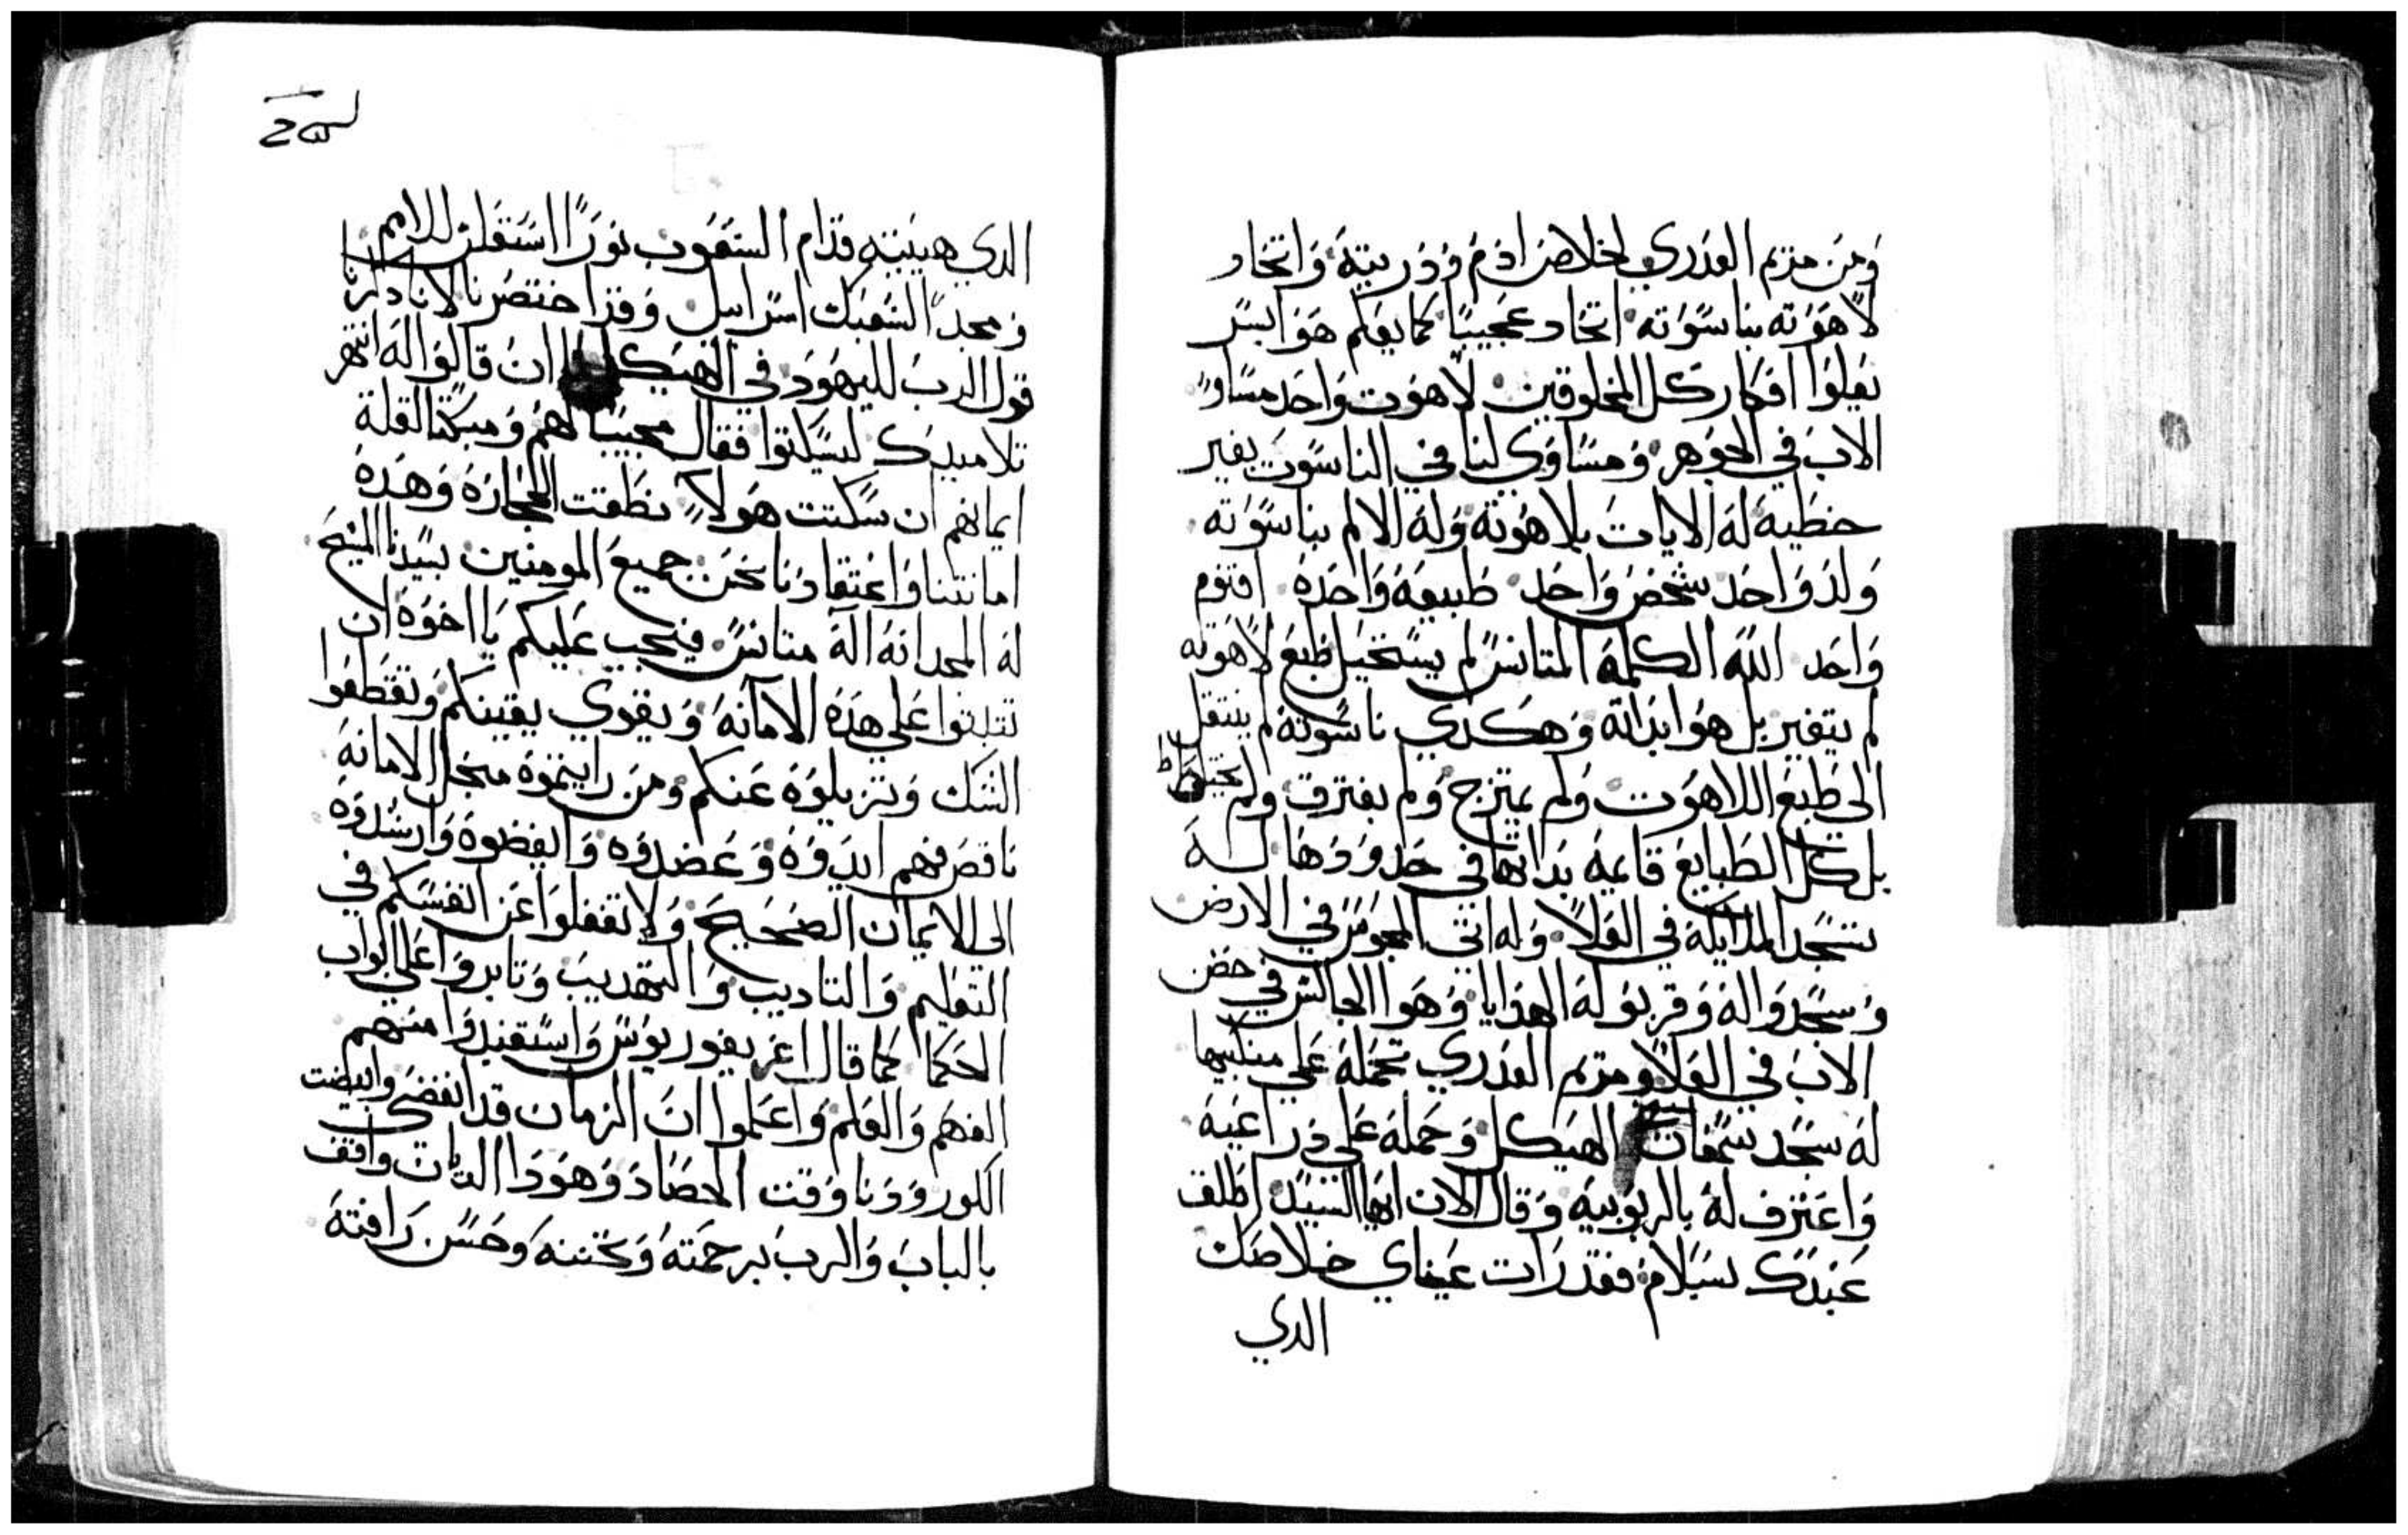 ومن مريم العذري لخلاص ادم وذريته واتحاد
لاهوته بناسوته اتحاد عجيبًا كما يعلم هوا بسر
يعلوا افكار كل المخلوقين لاهوت واحد مساوٍ
الاب في الجوهر ومساوي لنا في الناسوت بغير
خطية له الايات بلاهوته وله الالام بناسوته
ولد واحد شخص واحد طبيعة واحدة اقنوم
واحد الله الكلمة المتانس لم يستحيل طبع لاهوته
لم يتغير بل هوا بداته وهكدي ناسوته لم ينتقل
الي طبع اللاهوت ولم يمتزج ولم يفترق ولم يختلط
بل كل الطبايع قايمة بداتها في حدودها له
تسجد الملايكة في العلا وله اتى المجوس في الارض
وسجدوا له وقربو له الهدايا وهوا الجالس في حضن
الاب في العلا ومريم العدري تحمله علي منكبيها
له سجد سمعان الهيكل وحمله علي دراعيه
واعترف له بالربوبيه وقال الان ايها السيد اطلق
عبدك بسلام فقد رات عيناي خلاصك
الدي
الدي هييته قدام الشعوب نورًا استعلن للامم
ومجدًا لشعبك اسراييل وقد اختصرنا لاننا دكرنا
قول الرب لليهود في الهيكل ان قالوا له انتهر
تلاميدك ليسكتوا فقال مجيبًا لهم ومبكتًا لقلة
ايمانهم ان سكتت هولاء نطقت الحجارة وهده
امانتنا واعتقادنا نحن جميع المومنين بسيدنا المسيح
له المجد انه اله متانس فيجب عليكم يا اخوه ان
تتبتوا علي هده الامانه ويقوي يقينكم وتقطعوا
الشك وتزيلوه عنكم ومن رايتموه منحل الامانه
ناقص فهم ايدوه وعضدوه وايقضوه وارشدوه
الى الايمان الصحيح ولا تغفلوا عن انفسكم في
التعليم والتاديب والتهديب وتابروا علي ابواب
الحكما كما قال اغريغوريوس واستفيدوا منهم
الفهم والعلم واعلموا ان الزمان قد انقضي وابيضت
الكور ودنا وقت الحصاد وهودا الديان واقف
بالباب والرب برحمته وتحننه وحسن رافته